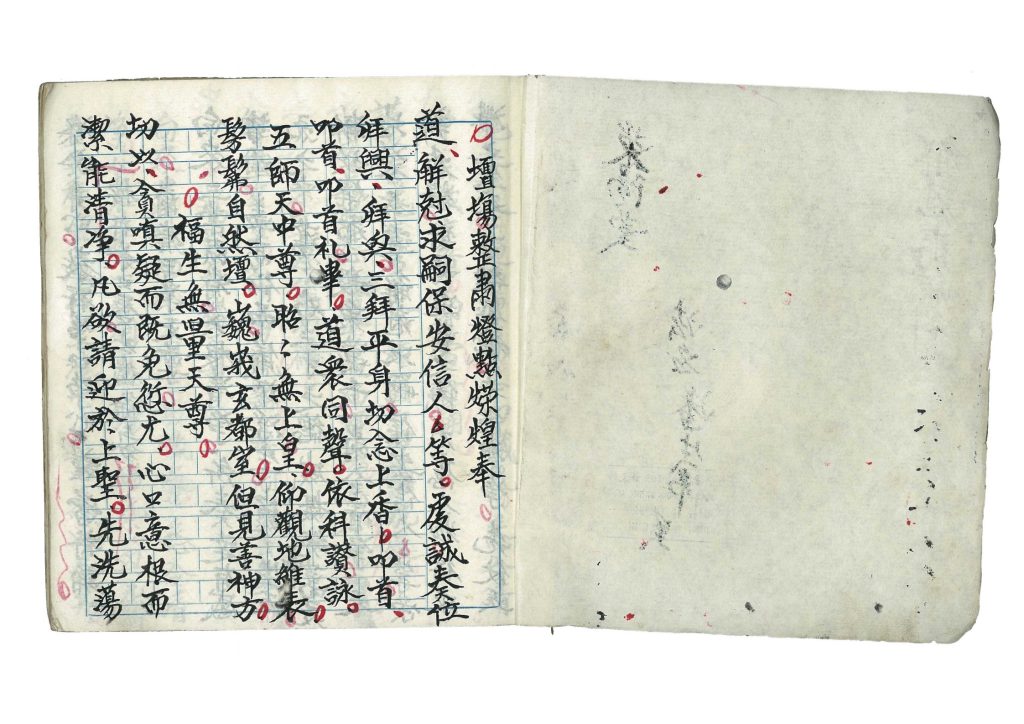 壇塲整肅燈點煠煌奉
道、解愆求嗣保安信人ミ等。虔誠奏位
拜興、拜興、三拜平身切念上香。叩首、
叩首、叩首礼畢。道衆同聲。依科讃詠。
五師天中尊。昭ミ無上皇、仰觀地維表。
髣髴自然壇。巍峩玄都室。但見善神方。
福生無量天尊。
切以、貪嗔疑而既免愆尤。心口意根而
潔能清净。凡欲請迎於上聖。先洗蕩